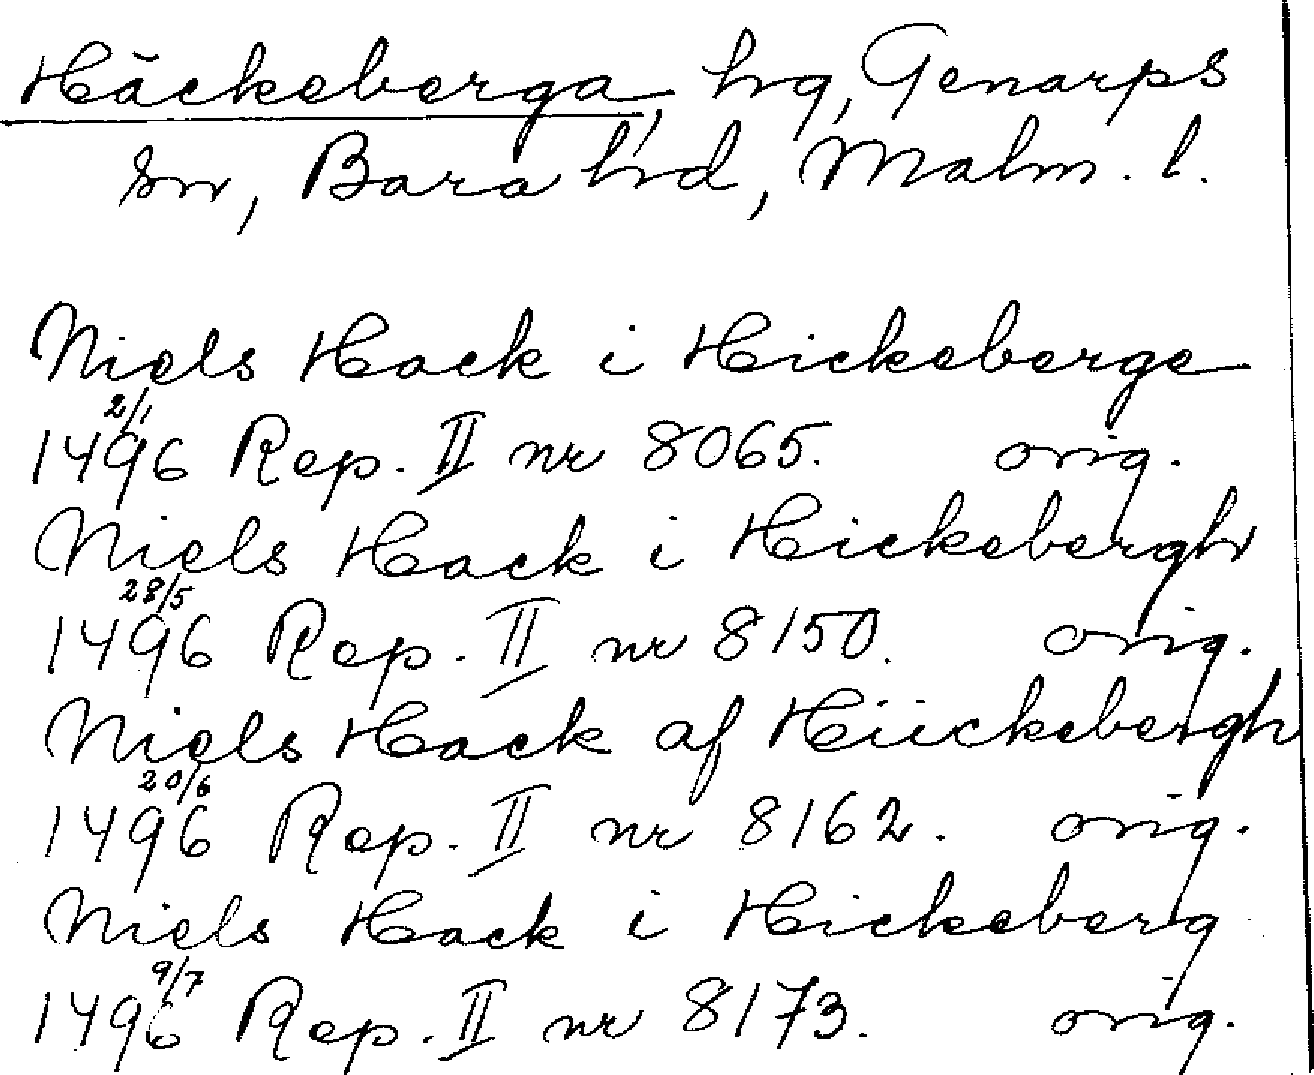 Häckeberga, hrg, Genarps
sn, Bara hrd, Malm. l.
Niels Hack i Hickeberge
2/1
1496 Rep. II nr 8065. orig.
Niels Hack i Hickebergh
28/5
1496 Rep. II nr 8150. orig.
Niels Hack af Hiickebergh
20/6
1496 Rep. II nr 8162. orig.
Niels Hack i Hickeberg
9/7
1496 Rep. II nr 8173. orig.